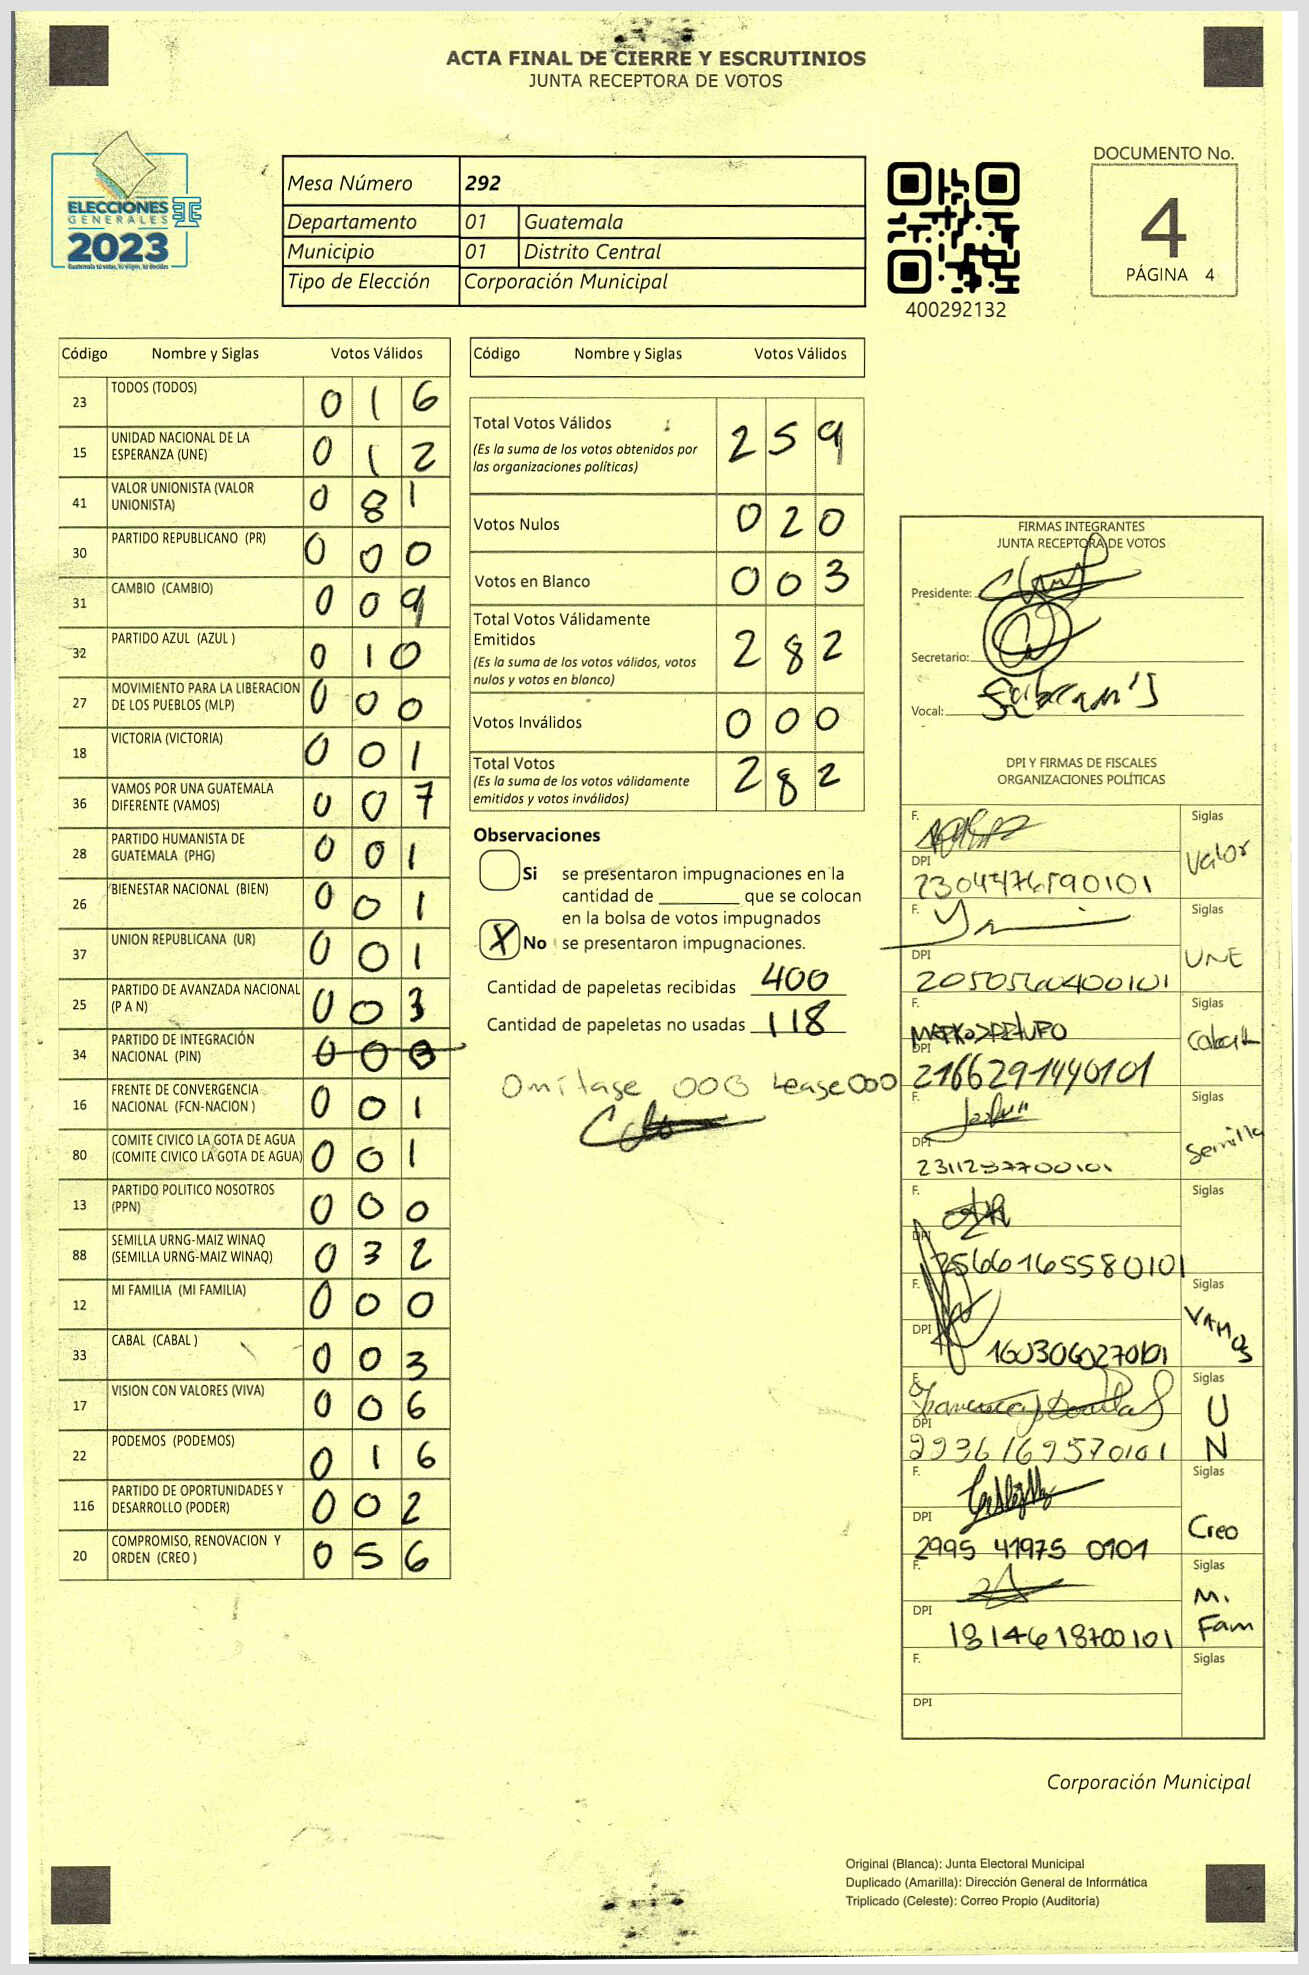 ACTA FINAL DE CIERRE Y ESCRUTINIOS
JUNTA RECEPTORA DE VOTOS
ELECCIONES
GENERALES
2023
Mesa Número 292
Departamento 01 Guatemala
Municipio 01 Distrito Central
Tipo de Elección Corporación Municipal
400292132
DOCUMENTO No.
4
PÁGINA 4
Código Nombre y Siglas Votos Válidos
23 TODOS (TODOS) 0 1 6
15 UNIDAD NACIONAL DE LA ESPERANZA (UNE) 0 1 2
41 VALOR UNIONISTA (VALOR UNIONISTA) 0 8 1
30 PARTIDO REPUBLICANO (PR) 0 0 0
31 CAMBIO (CAMBIO) 0 0 9
32 PARTIDO AZUL (AZUL ) 0 1 0
27 MOVIMIENTO PARA LA LIBERACION DE LOS PUEBLOS (MLP) 0 0 0
18 VICTORIA (VICTORIA) 0 0 1
36 VAMOS POR UNA GUATEMALA DIFERENTE (VAMOS) 0 0 7
28 PARTIDO HUMANISTA DE GUATEMALA (PHG) 0 0 1
26 BIENESTAR NACIONAL (BIEN) 0 0 1
37 UNION REPUBLICANA (UR) 0 0 1
25 PARTIDO DE AVANZADA NACIONAL (P A N) 0 0 3
34 PARTIDO DE INTEGRACIÓN NACIONAL (PIN) 0 0
16 FRENTE DE CONVERGENCIA NACIONAL (FCN-NACION ) 0 0 1
80 COMITE CIVICO LA GOTA DE AGUA (COMITE CIVICO LA GOTA DE AGUA) 0 0 1
13 PARTIDO POLITICO NOSOTROS (PPN) 0 0 0
88 SEMILLA URNG-MAIZ WINAQ (SEMILLA URNG-MAIZ WINAQ) 0 3 2
12 MI FAMILIA (MI FAMILIA) 0 0 0
33 CABAL (CABAL ) 0 0 3
17 VISION CON VALORES (VIVA) 0 0 6
22 PODEMOS (PODEMOS) 0 1 6
116 PARTIDO DE OPORTUNIDADES Y DESARROLLO (PODER) 0 0 2
20 COMPROMISO, RENOVACION Y ORDEN (CREO ) 0 5 6
Código Nombre y Siglas Votos Válidos
Total Votos Válidos 2 5 9
(Es la suma de los votos obtenidos por
las organizaciones políticas)
Votos Nulos 0 2 0
Votos en Blanco 0 0 3
Total Votos Válidamente
Emitidos 2 8 2
(Es la suma de los votos válidos, votos
nulos y votos en blanco)
Votos Inválidos 0 0 0
Total Votos 2 8 2
(Es la suma de los votos válidamente
emitidos y votos inválidos)
Observaciones
Si se presentaron impugnaciones en la
cantidad de ________ que se colocan
en la bolsa de votos impugnados
X No se presentaron impugnaciones.
Cantidad de papeletas recibidas 400
Cantidad de papeletas no usadas 118
Omitase 003 Lease 000
FIRMAS INTEGRANTES
JUNTA RECEPTORA DE VOTOS
Presidente:
Secretario:
Vocal:
DPI Y FIRMAS DE FISCALES
ORGANIZACIONES POLÍTICAS
F. Siglas
DPI Valor
F. Siglas
DPI UNE
F. Siglas
DPI Cabal
2166291440101
F. Siglas
DPI Semilla
2311237700101
F. Siglas
DPI
2566165580101
F. Siglas
DPI VAMOS
F. Siglas
DPI U N
2936169570101
F. Siglas
DPI Creo
2995 41975 0101
F. Siglas
DPI M. Fam
1814618700101
F. Siglas
DPI
Corporación Municipal
Original (Blanca): Junta Electoral Municipal
Duplicado (Amarilla): Dirección General de Informática
Triplicado (Celeste): Correo Propio (Auditoría)